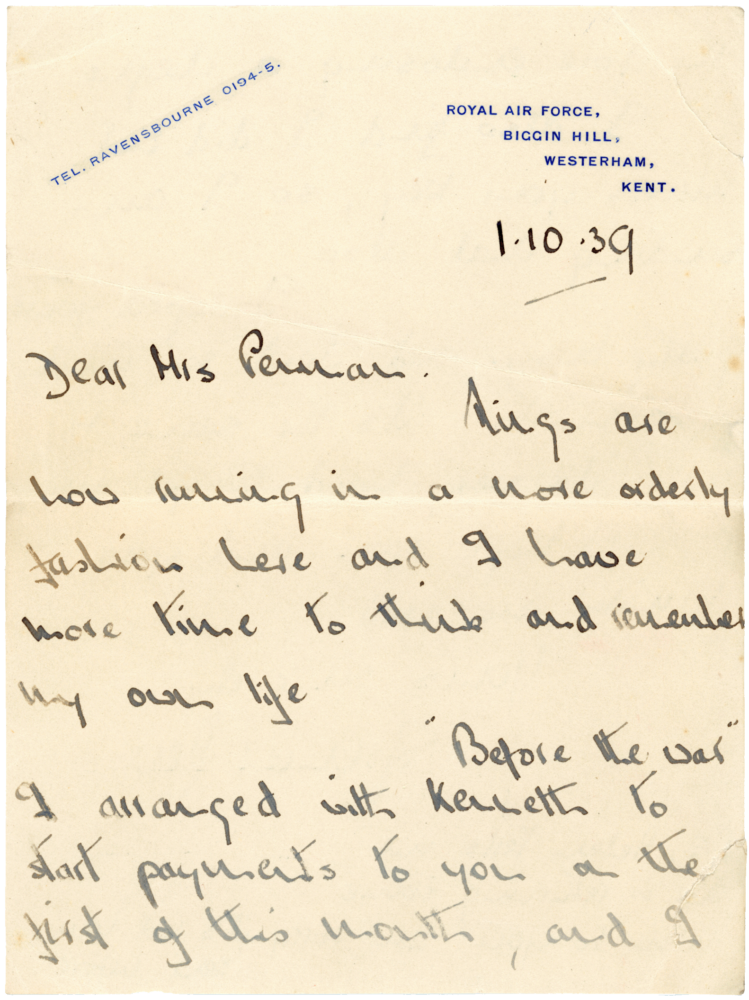 TEL. RAVENSBOURNE 0194-5.
ROYAL AIR FORCE,
BIGGIN HILL,
WESTERHAM,
KENT.
1.10.39
Dear Mrs Penman.
Things are
now running in a more orderly
fashion here and I have
more time to think and remember
my own life
"Before the war"
I arranged with Kenneth to
start payments to you on the
first of this month, and I